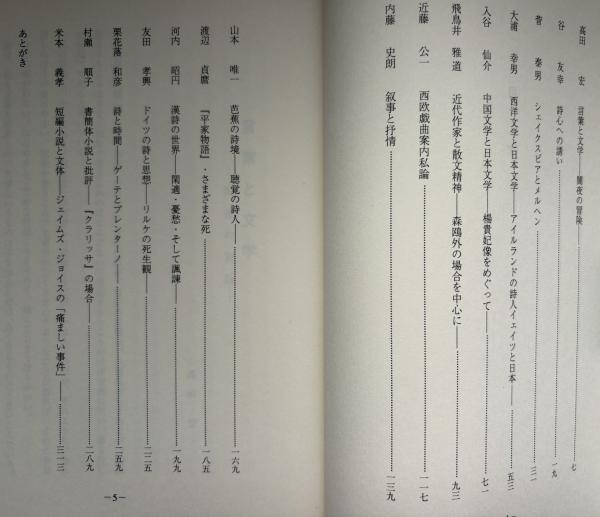 高田 宏 言葉と文学――闇夜の冒険……七
谷 友幸 詩心への誘い……一九
菅 泰男 シェイクスピアとメルヘン……三一
大浦 幸男 西洋文学と日本文学――アイルランドの詩人イェイツと日本――……五三
入谷 仙介 中国文学と日本文学――楊貴妃像をめぐって――……七一
飛鳥井 雅道 近代作家と散文精神――森鴎外の場合を中心に――……九三
近藤 公一 西欧戯曲案内私論……一一七
内藤 史朗 叙事と抒情……一三九
山本 唯一 芭蕉の詩境――聴覚の詩人――……一六九
渡辺 貞麿 『平家物語』・さまざまな死……一八五
河内 昭円 漢詩の世界――閑適・憂愁・そして諷諫――……一九九
友田 孝興 ドイツの詩と思想――リルケの死生観――……二二五
栗花落 和彦 詩と時間――ゲーテとブレンターノ――……二五九
村瀬 順子 書簡体小説と批評――『クラリッサ』の場合――……二八九
米本 義孝 短編小説と文体――ジェイムズ・ジョイスの「痛ましい事件」――……三一三
あとがき
―5―